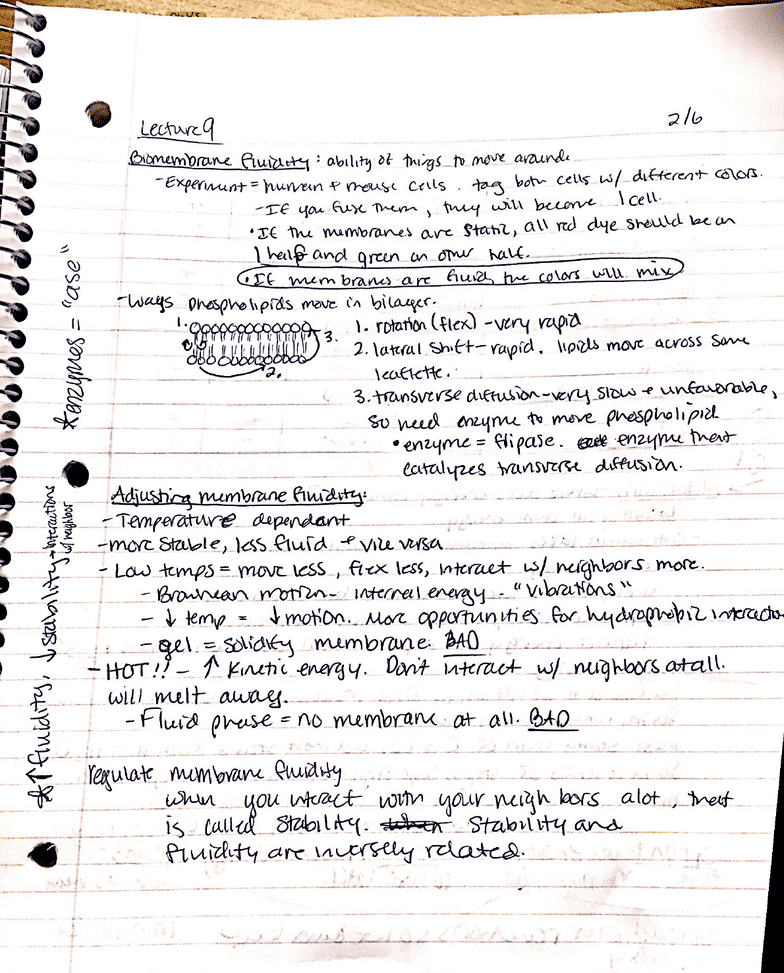 Lecture 9
2/6
Biomembrane fluidity: ability of things to move around.
- Experiment = human + mouse cells. tag both cells w/ different colors.
- If you fuse them, they will become 1 cell.
• If the membranes are static, all red dye should be on
1 half and green on other half.
• If membranes are fluid the colors will mix
- Ways phospholipids move in bilayer.
1.
3.
2.
1. rotation (flex) - very rapid
2. lateral shift - rapid. lipids move across same
leaflette.
3. transverse diffusion - very slow + unfavorable,
so need enzyme to move phospholipid
• enzyme = flipase. enzyme that
catalyzes transverse diffusion.
*enzymes = "ase"
Adjusting membrane fluidity:
- Temperature dependant
- more stable, less fluid + vice versa
- Low temps = move less, flex less, interact w/ neighbors more.
- Brownean motion - internal energy - "vibrations"
- ↓ temp = ↓ motion. More opportunities for hydrophobic interactio
- gel = solidify membrane. BAD
- HOT!! - ↑ kinetic energy. Don't interact w/ neighbors at all.
will melt away.
- Fluid phase = no membrane at all. BAD
*↑ fluidity, ↓ stability → interactions
w/ neighbor
regulate membrane fluidity
when you interact with your neighbors alot, that
is called stability. when Stability and
fluidity are inversely related.